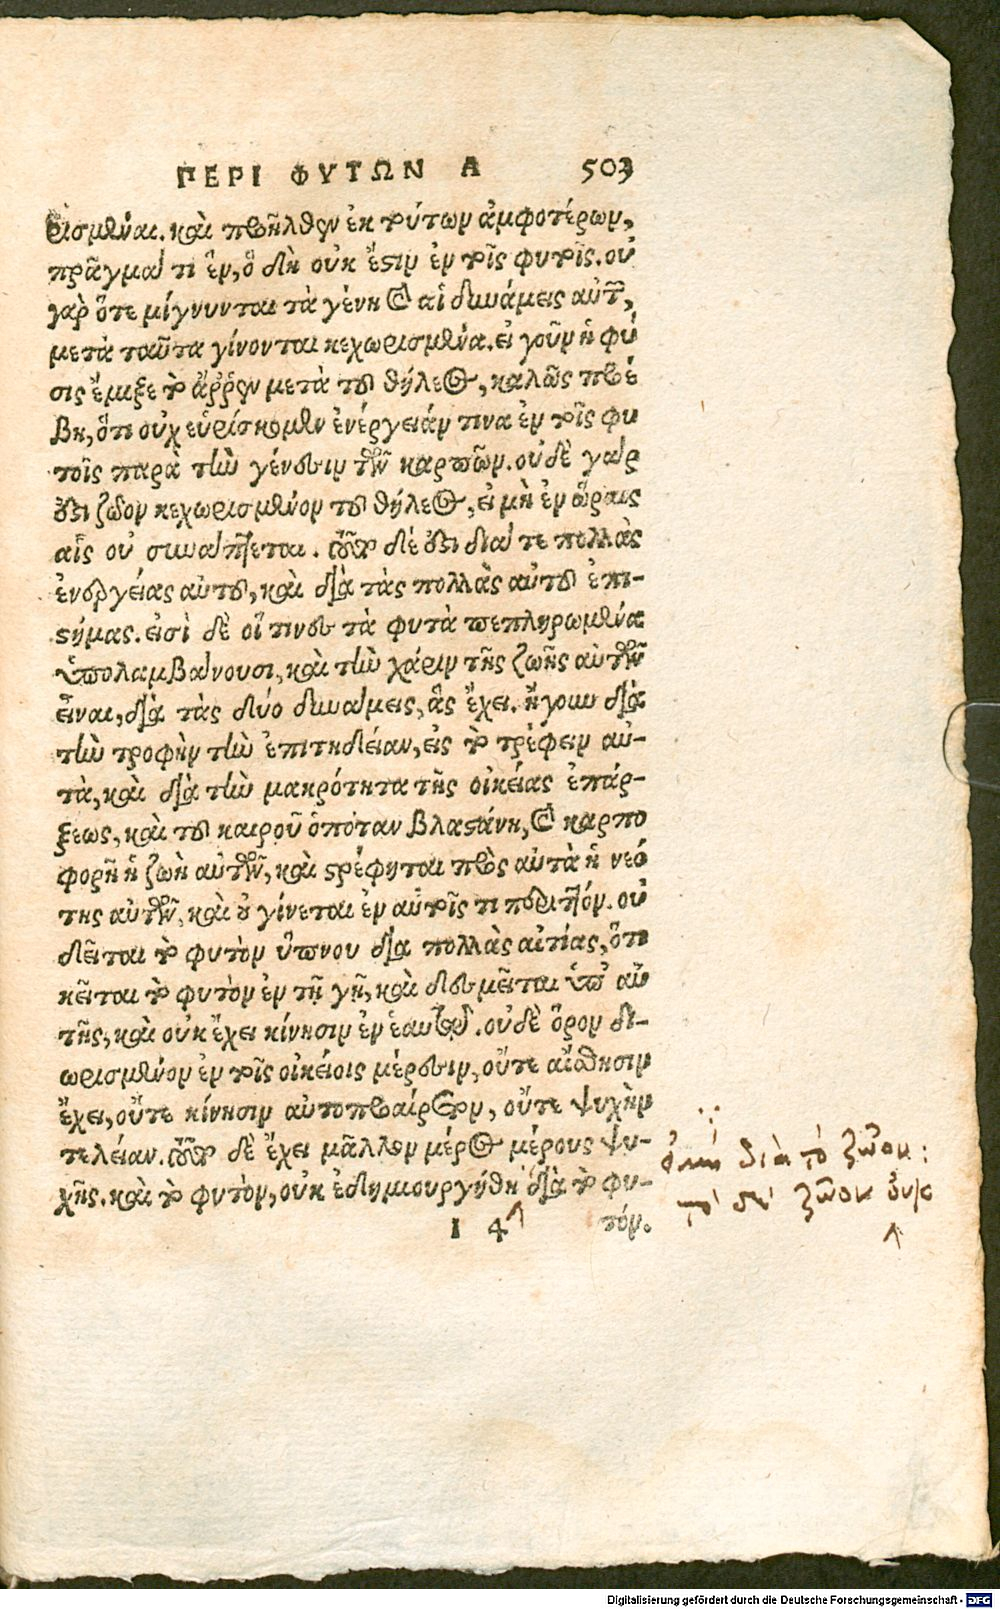 ΠΕΡΙ ΦΥΤΩΝ Α 503
ρισμέναι. καὶ προῆλθεν ἐκ τούτων ἀμφοτέρων,
πρᾶγμά τι ἓν, ὃ δὴ οὐκ ἔστιν ἐν τοῖς φυτοῖς. οὐ
γὰρ ὅτε μίγνυνται τὰ γένη καὶ αἱ δυνάμεις αὐτῶν,
μετὰ ταῦτα γίνονται κεχωρισμένα. εἰ γοῦν ἡ φύ
σις ἔμιξε τὸ ἄῤῥεν μετὰ τοῦ θήλεος, καλῶς προέ
βη, ὅτι οὐχ εὑρίσκομεν ἐνέργειάν τινα ἐν τοῖς φυ
τοῖς παρὰ τὴν γένεσιν τῶν καρπῶν. οὐδὲ γάρ
ἐστι ζῶον κεχωρισμένον τοῦ θήλεος, εἰ μὴ ἐν ὥραις
αἷς οὐ συνάπτεται. τοῦτο δέ ἐστι διά τε πολλὰς
ἐνεργείας αὐτοῦ, καὶ διὰ τὰς πολλὰς αὐτοῦ ἐπι-
στήμας. εἰσὶ δὲ οἵ τινες τὰ φυτὰ πεπληρωμένα
ὑπολαμβάνουσι, καὶ τὴν χάριν τῆς ζωῆς αὐτῶν
εἶναι, διὰ τὰς δύο δυνάμεις, ἃς ἔχει. ἤγουν διὰ
τὴν τροφὴν τὴν ἐπιτηδείαν, εἰς τὸ τρέφειν αὐ-
τὰ, καὶ διὰ τὴν μακρότητα τῆς οἰκείας ἐπάρ-
ξεως, καὶ τοῦ καιροῦ ὁπόταν βλαστάνῃ, καὶ καρπο
φορῇ ἡ ζωὴ αὐτῶν, καὶ στρέφηται πρὸς αὐτὰ ἡ νεό
της αὐτῶν, καὶ οὐ γίνεται ἐν αὐτοῖς τι περιττόν. οὐ
δεῖται τὸ φυτὸν ὕπνου διὰ πολλὰς αἰτίας, ὅτι
κεῖται τὸ φυτὸν ἐν τῇ γῇ, καὶ δεσμεῖται ὑπ' αὐ
τῆς, καὶ οὐκ ἔχει κίνησιν ἐν ἑαυτῷ. οὐδὲ ὅρον δι-
ωρισμένον ἐν τοῖς οἰκείοις μέρεσιν, οὔτε αἴσθησιν
ἔχει, οὔτε κίνησιν αὐτοπροαίρετον, οὔτε ψυχὴν
τελείαν. τοῦτο δὲ ἔχει μᾶλλον μέρος μέρους ψυ-
χῆς. καὶ τὸ φυτὸν, οὐκ ἐδημιουργήθη διὰ τὸ φυ-
I 4 τόν.
διὰ τὸ ζῶον:
τὸ δὲ ζῶον οὐκ